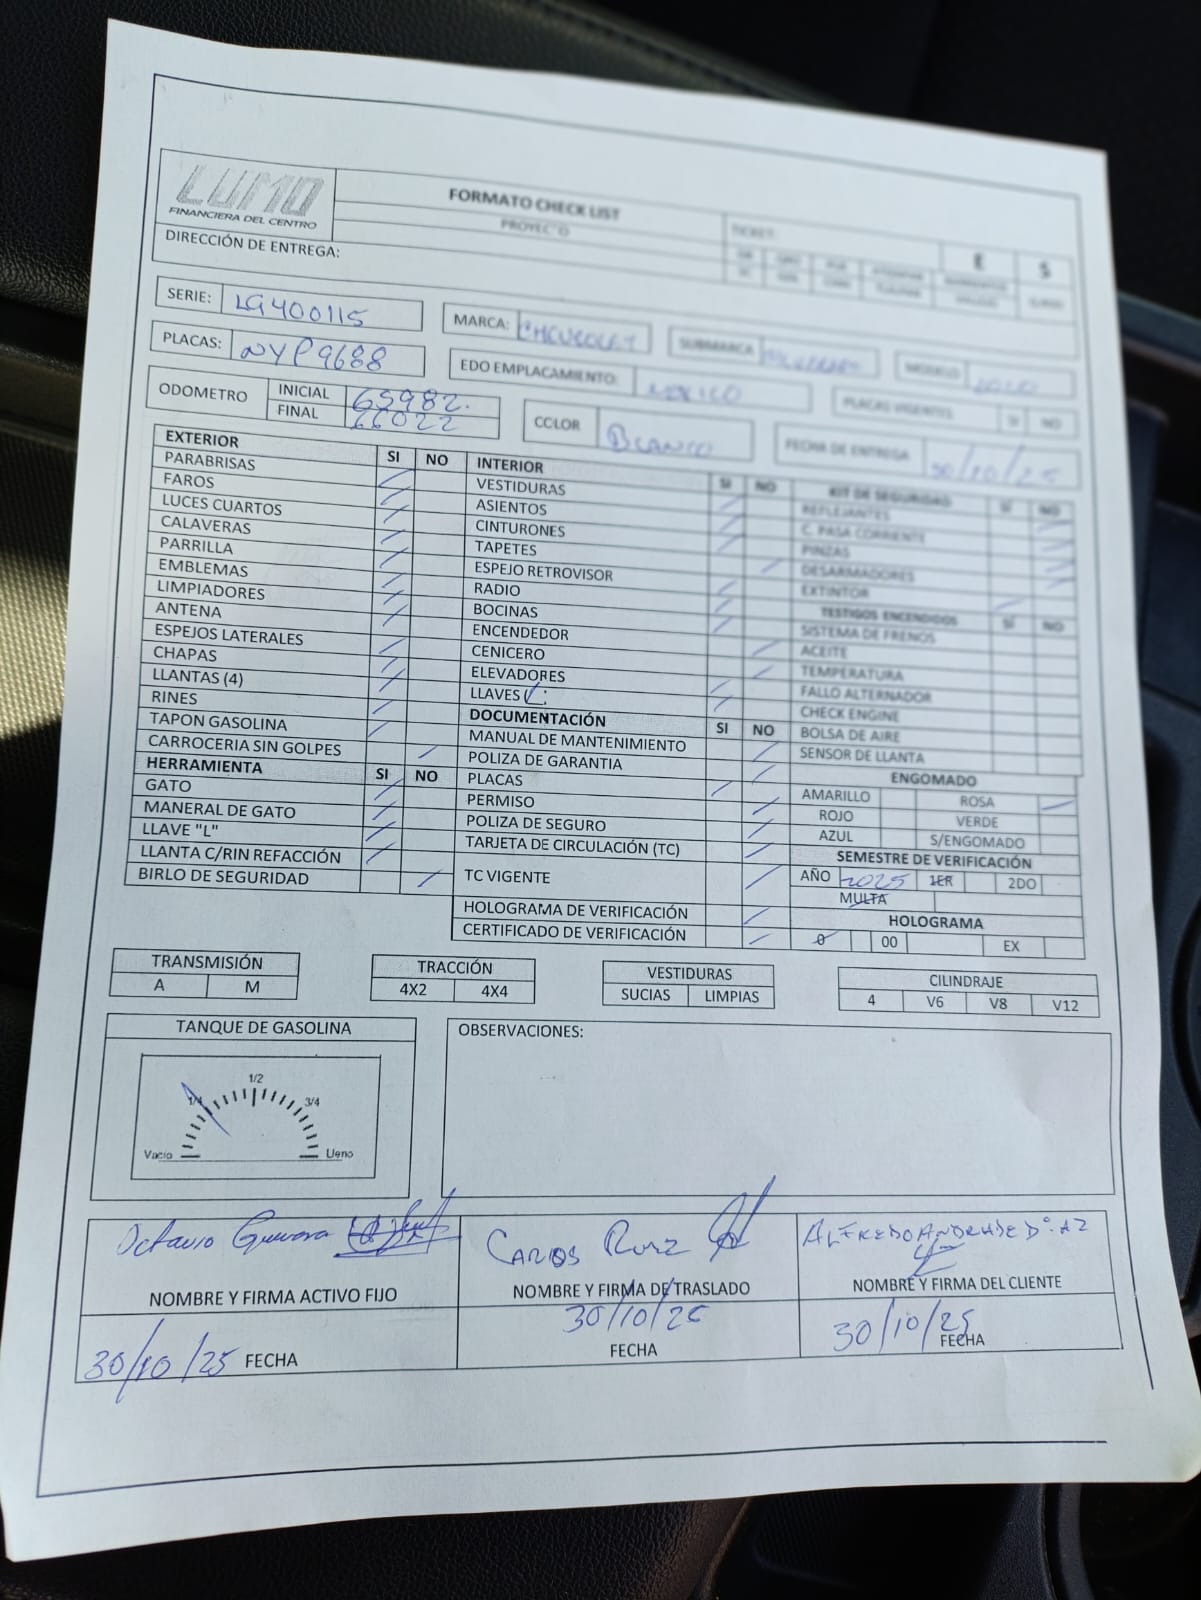 LUMO
FINANCIERA DEL CENTRO
FORMATO CHECK LIST
PROYECTO
TICKET:
E S
DIRECCIÓN DE ENTREGA:
SERIE: LG400115
MARCA: CHEVROLET
SUBMARCA
MODELO
PLACAS: NYP9688
EDO EMPLACAMIENTO: MEXICO
PLACAS VIGENTES SI NO
ODOMETRO INICIAL 65982.
FINAL 66022
COLOR BLANCO
FECHA DE ENTREGA 30/10/25
EXTERIOR SI NO
PARABRISAS
FAROS
LUCES CUARTOS
CALAVERAS
PARRILLA
EMBLEMAS
LIMPIADORES
ANTENA
ESPEJOS LATERALES
CHAPAS
LLANTAS (4)
RINES
TAPON GASOLINA
CARROCERIA SIN GOLPES
HERRAMIENTA SI NO
GATO
MANERAL DE GATO
LLAVE "L"
LLANTA C/RIN REFACCIÓN
BIRLO DE SEGURIDAD
INTERIOR SI NO
VESTIDURAS
ASIENTOS
CINTURONES
TAPETES
ESPEJO RETROVISOR
RADIO
BOCINAS
ENCENDEDOR
CENICERO
ELEVADORES
LLAVES
DOCUMENTACIÓN SI NO
MANUAL DE MANTENIMIENTO
POLIZA DE GARANTIA
PLACAS
PERMISO
POLIZA DE SEGURO
TARJETA DE CIRCULACIÓN (TC)
TC VIGENTE
HOLOGRAMA DE VERIFICACIÓN
CERTIFICADO DE VERIFICACIÓN
KIT DE SEGURIDAD SI NO
REFLEJANTES
C. PASA CORRIENTE
PINZAS
DESARMADORES
EXTINTOR
TESTIGOS ENCENDIDOS SI NO
SISTEMA DE FRENOS
ACEITE
TEMPERATURA
FALLO ALTERNADOR
CHECK ENGINE
BOLSA DE AIRE
SENSOR DE LLANTA
ENGOMADO
AMARILLO ROSA
ROJO VERDE
AZUL S/ENGOMADO
SEMESTRE DE VERIFICACIÓN
AÑO 2025 1ER 2DO
MULTA
HOLOGRAMA
0 00 EX
TRANSMISIÓN
A M
TRACCIÓN
4X2 4X4
VESTIDURAS
SUCIAS LIMPIAS
CILINDRAJE
4 V6 V8 V12
TANQUE DE GASOLINA
1/4 1/2 3/4
Vacio Lleno
OBSERVACIONES:
Octavio Guevara
NOMBRE Y FIRMA ACTIVO FIJO
30/10/25 FECHA
CARLOS RUIZ
NOMBRE Y FIRMA DE TRASLADO
30/10/25
FECHA
ALFREDO ANDRADE
NOMBRE Y FIRMA DEL CLIENTE
30/10/25
FECHA